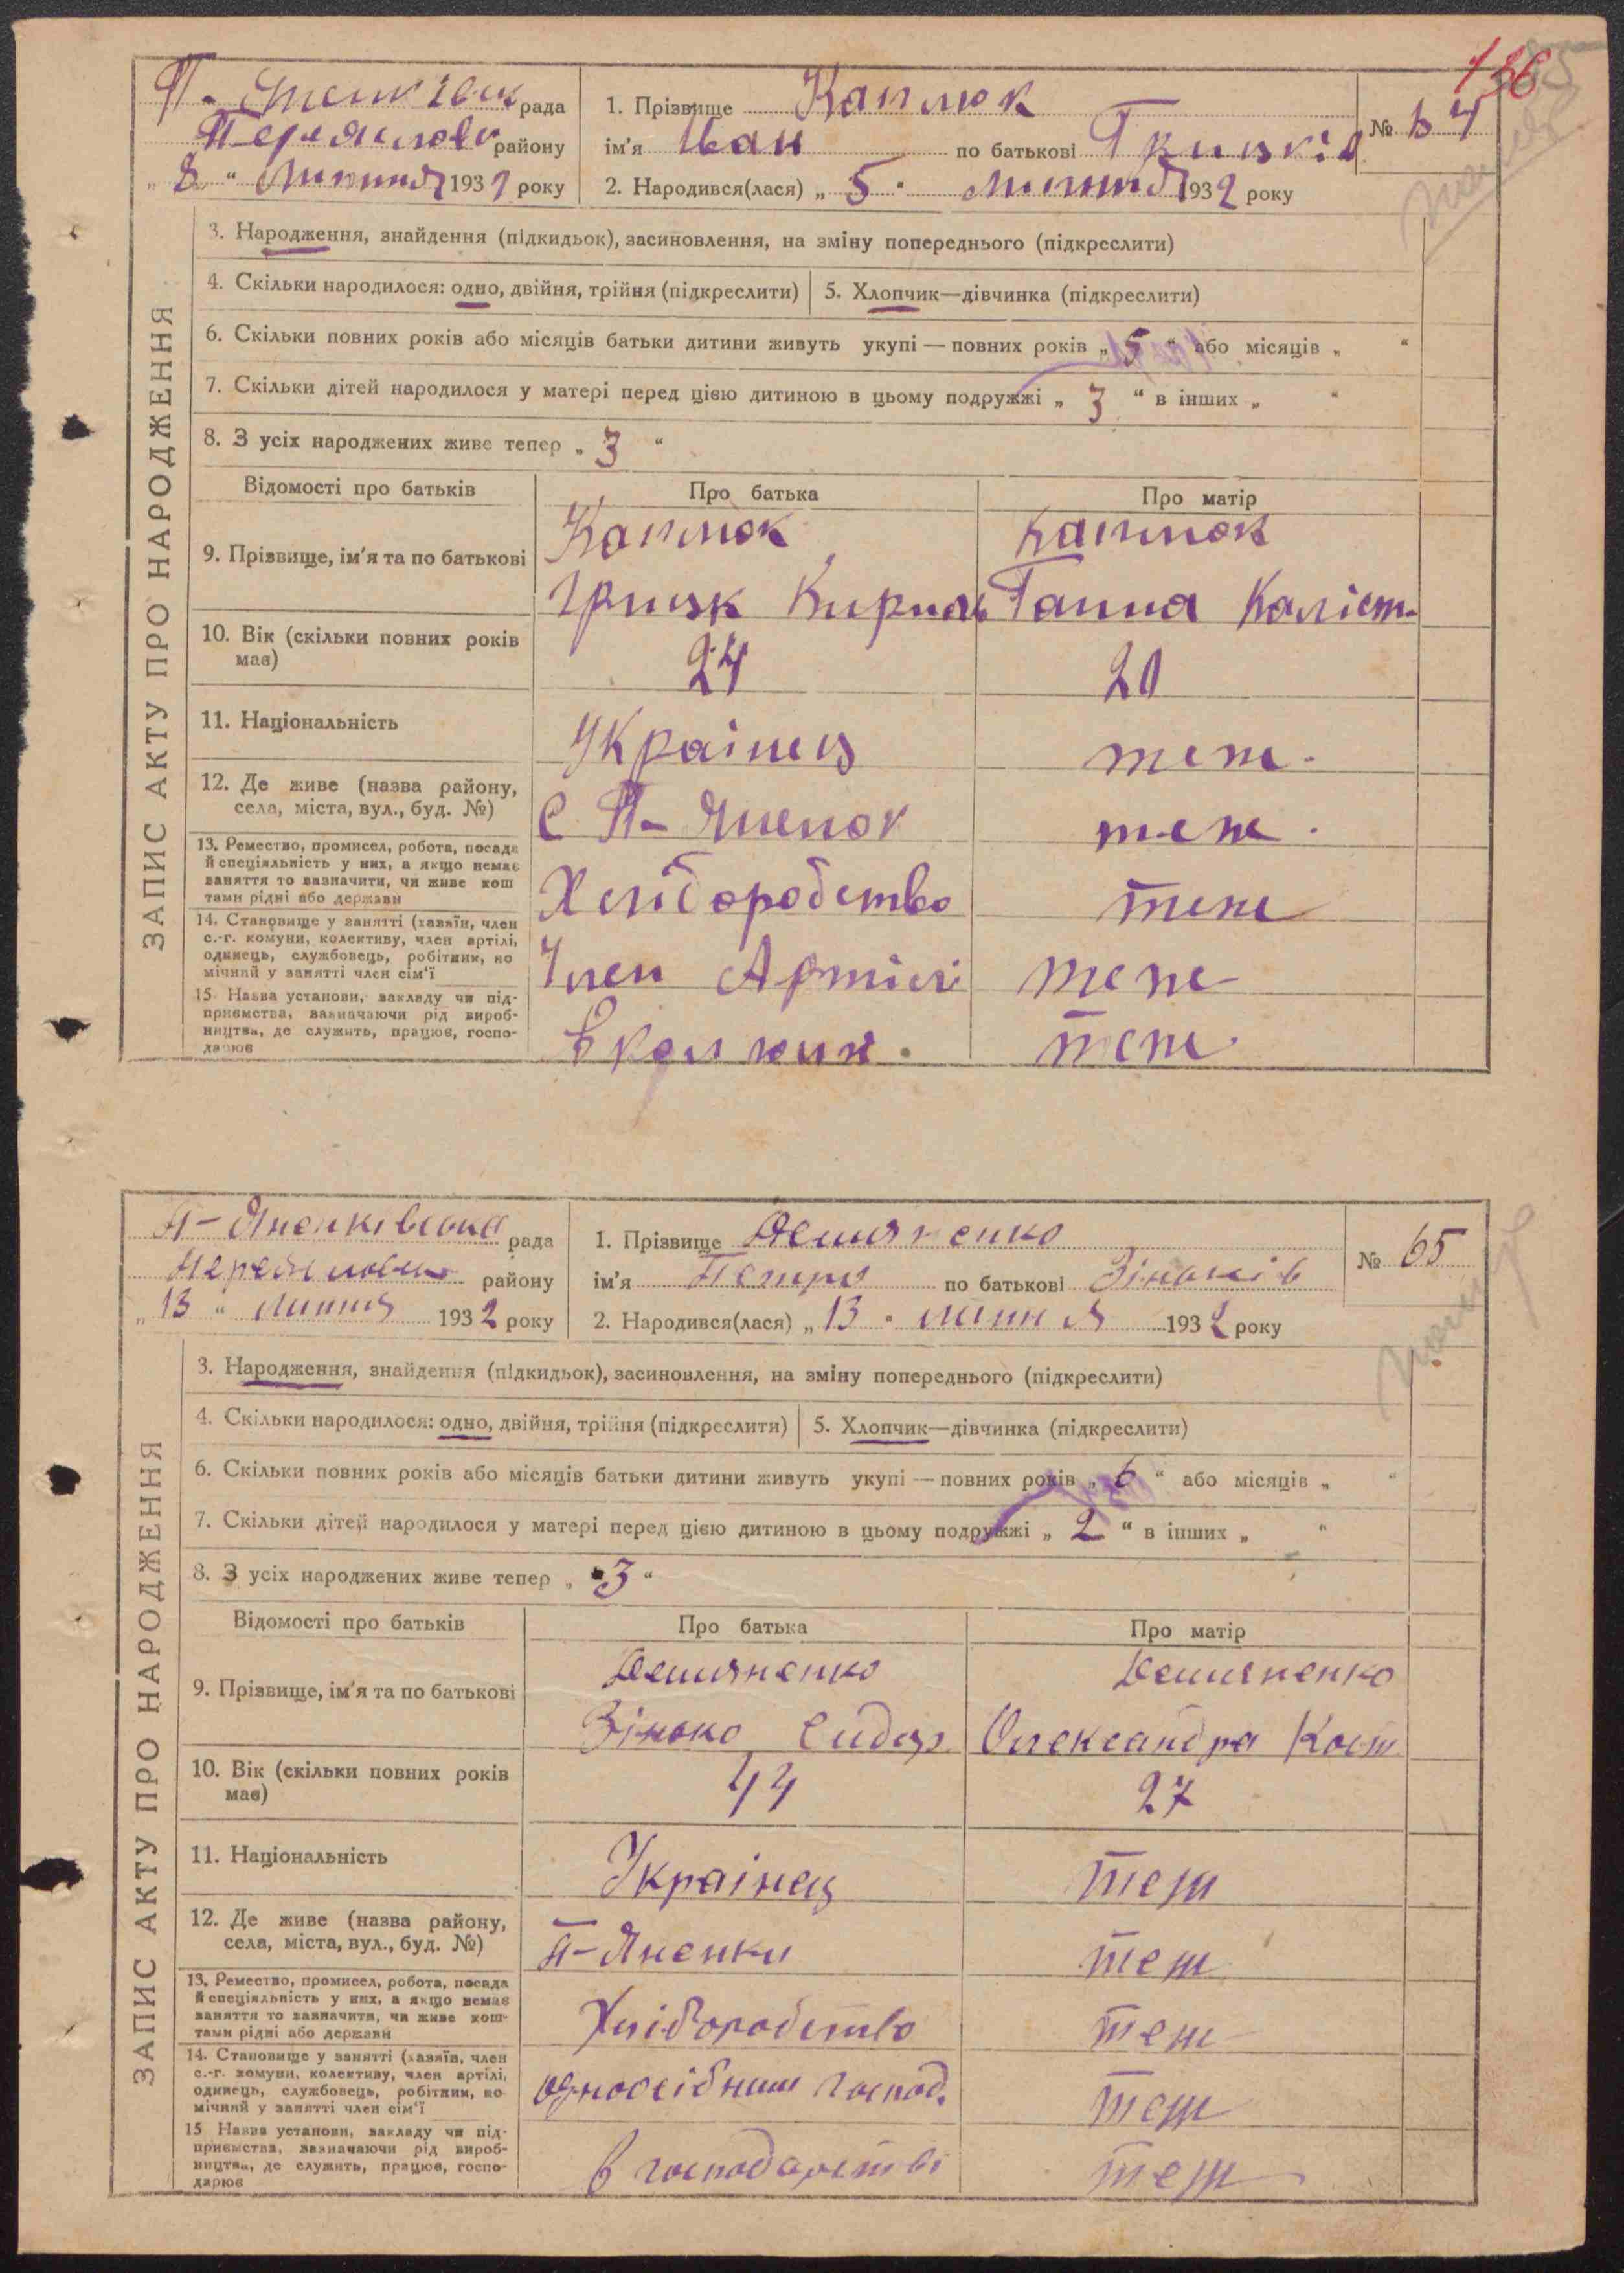 136
рада
району
„ 8 “ Липня 1932 року
1. Прізвище Каплюк
ім'я Іван по батькові Грицків
2. Народився(лася) „ 5 “ Липня 1932 року
№ 64
ЗАПИС АКТУ ПРО НАРОДЖЕННЯ
3. Народження, знайдення (підкидьок), засиновлення, на зміну попереднього (підкреслити)
4. Скільки народилося: одно, двійня, трійня (підкреслити)
5. Хлопчик—дівчинка (підкреслити)
6. Скільки повних років або місяців батьки дитини живуть укупі — повних років „ 5 “ або місяців „ “
7. Скільки дітей народилося у матері перед цією дитиною в цьому подружжі „ 3 “ в інших „ “
8. З усіх народжених живе тепер „ 3 “
Відомості про батьків
Про батька
Про матір
9. Прізвище, ім'я та по батькові
Каплюк
Грицк Кирил
Каплюк
Ганна Каліст.
10. Вік (скільки повних років
має)
24
20
11. Національність
Украінец
теж.
12. Де живе (назва району,
села, міста, вул., буд. №)
с П-Яненок
теж.
13. Ремество, промисел, робота, посада
й спеціяльність у них, а якщо немає
заняття то зазначити, чи живе кош
тами рідні або держави
Хліборобство
теж
14. Становище у занятті (хазяїн, член
с.-г. комуни, колективу, член артілі,
одинець, службовець, робітник, по
мічний у занятті член сім'ї
Член Артілі
теж
15. Назва установи, закладу чи під-
приємства, зазначаючи рід вироб-
ництва, де служить, працює, госпо-
дарює
теж.
П-Яненківська рада
району
„ 13 “ липня 1932 року
1. Прізвище Демяненко
ім'я Петро по батькові Зіньків
2. Народився(лася) „ 13 “ липня 1932 року
№ 65
ЗАПИС АКТУ ПРО НАРОДЖЕННЯ
3. Народження, знайдення (підкидьок), засиновлення, на зміну попереднього (підкреслити)
4. Скільки народилося: одно, двійня, трійня (підкреслити)
5. Хлопчик—дівчинка (підкреслити)
6. Скільки повних років або місяців батьки дитини живуть укупі — повних років „ 6 “ або місяців „ “
7. Скільки дітей народилося у матері перед цією дитиною в цьому подружжі „ 2 “ в інших „ “
8. З усіх народжених живе тепер „ 3 “
Відомості про батьків
Про батька
Про матір
9. Прізвище, ім'я та по батькові
Демяненко
Зінько Сидор.
Демяненко
Олександра Кост.
10. Вік (скільки повних років
має)
44
27
11. Національність
Украінец
теж
12. Де живе (назва району,
села, міста, вул., буд. №)
П-Яненки
теж
13. Ремество, промисел, робота, посада
й спеціяльність у них, а якщо немає
заняття то зазначити, чи живе кош-
тами рідні або держави
Хліборобство
теж
14. Становище у занятті (хазяїн, член
с.-г. комуни, колективу, член артілі,
одинець, службовець, робітник, по
мічний у занятті член сім'ї
господ.
теж
15. Назва установи, закладу чи під-
приємства, зазначаючи рід вироб-
ництва, де служить, працює, госпо-
дарює
в господарстві
теж